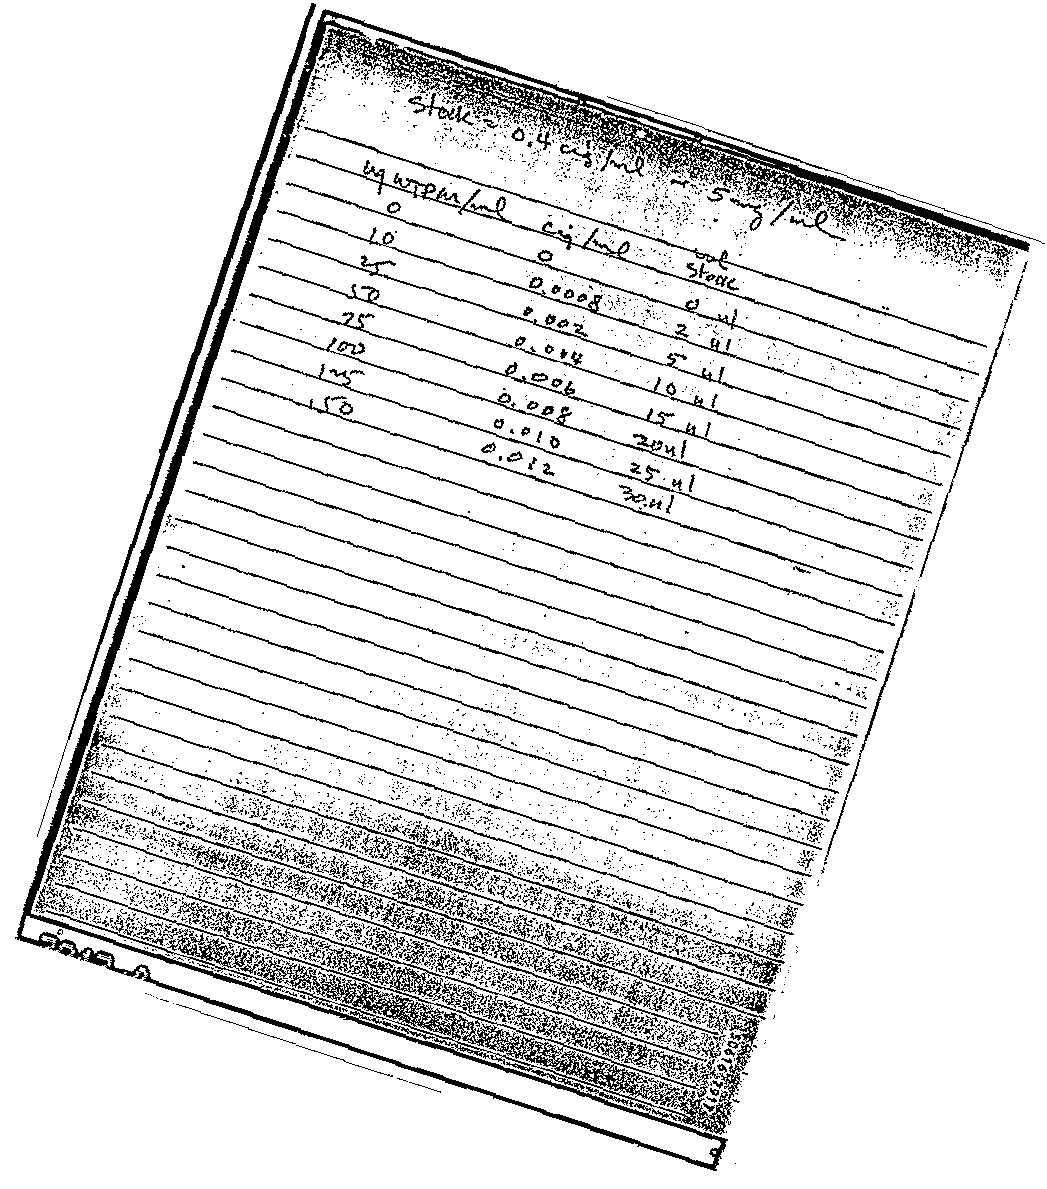 Stock = 0.4 cig/ml ~ 5 mg/ml
ug WTPM/ml cig/ml vol stock
0 0 0 ul
10 0.0008 2 ul
25 0.002 5 ul
50 0.004 10 ul
75 0.006 15 ul
100 0.008 20 ul
125 0.010 25 ul
150 0.012 30 ul